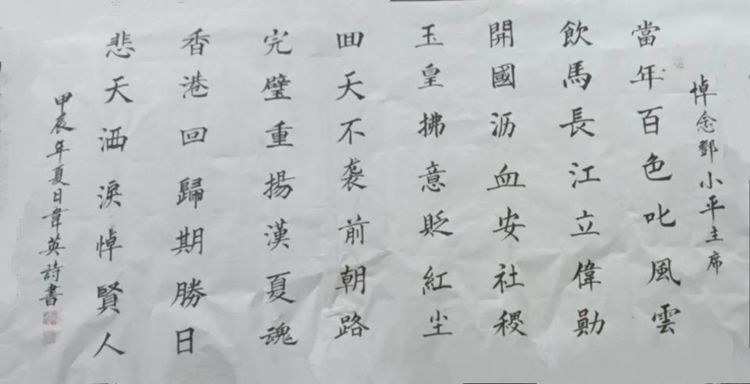 悼念鄧小平主席
當年百色叱風雲
飲馬長江立偉勛
開國沥血安社稷
玉皇拂意貶紅尘
回天不袭前朝路
完璧重揚漢夏魂
香港回歸期勝日
悲天洒淚悼賢人
甲辰年夏日韋英詩書